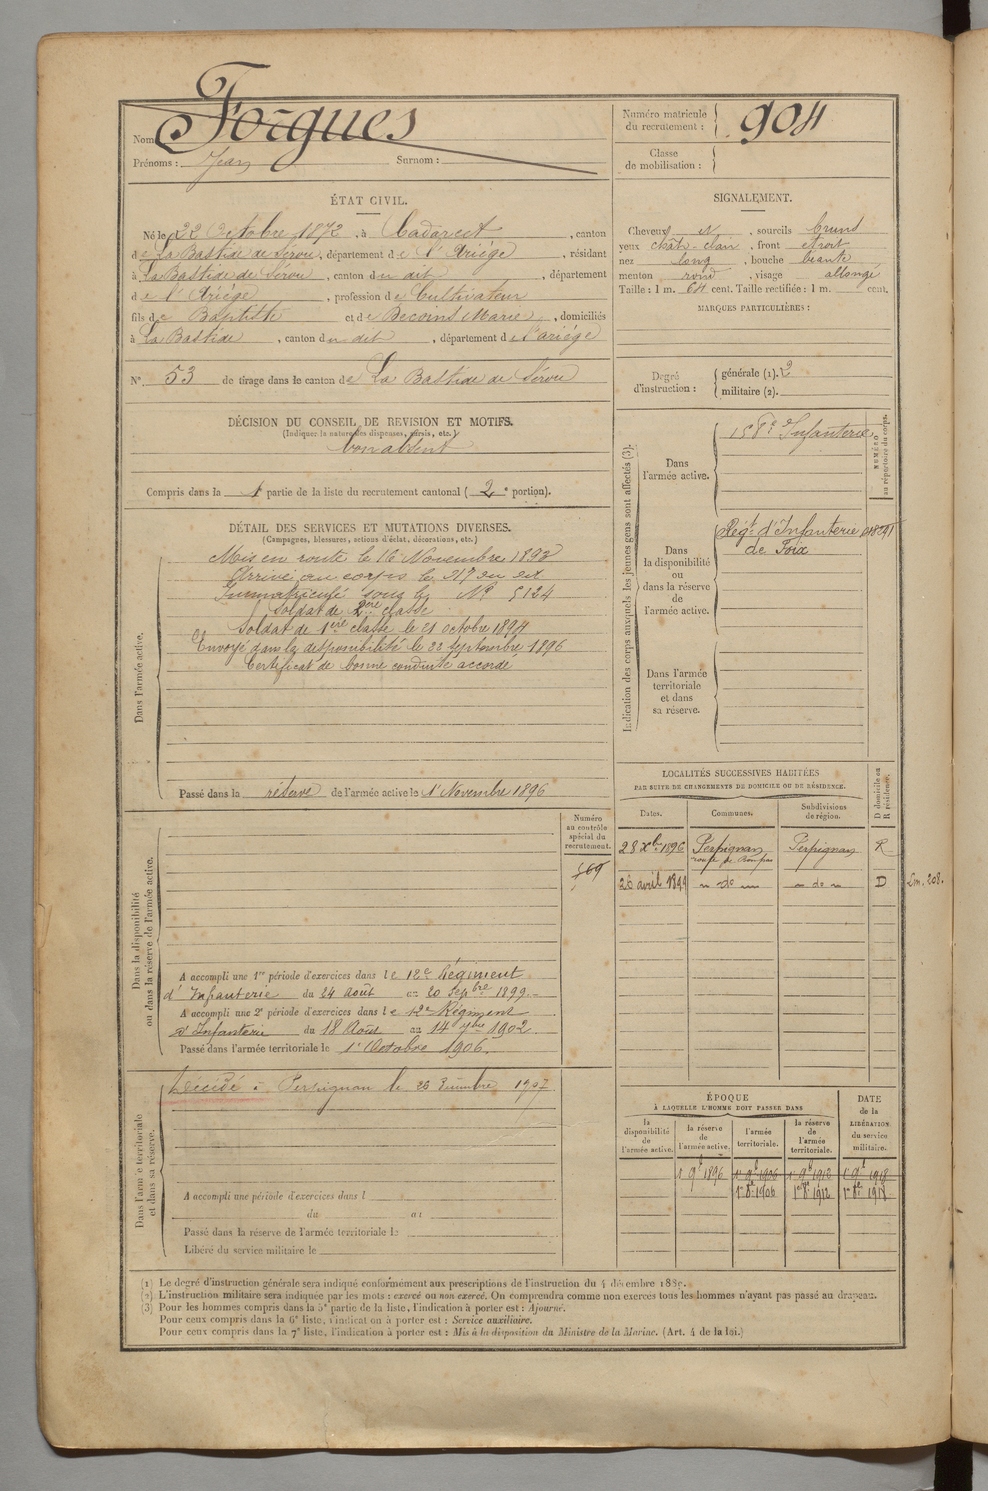 Nom Forgues
Prénoms : Jean Surnom :
Numéro matricule du recrutement : 904
Classe de mobilisation :
ÉTAT CIVIL.
Né le 22 Octobre 1872, à Cadarcet, canton
de La Bastide de Sérou, département de l'Ariége, résidant
à La Bastide de Sérou, canton du dit, département
de l'Ariége, profession de Cultivateur
fils de Baptiste et de Becoins Marie, domiciliés
à La Bastide, canton du dit, département de l'ariége
N° 53 de tirage dans le canton de La Bastide de Sérou
SIGNALEMENT.
Cheveux et, sourcils bruns
yeux chât-clair, front étroit
nez long, bouche béante
menton rond, visage allongé
Taille : 1 m. 64 cent. Taille rectifiée : 1 m. cent.
MARQUES PARTICULIÈRES :
Degré d'instruction : générale (1). 2
militaire (2).
DÉCISION DU CONSEIL DE REVISION ET MOTIFS.
(Indiquer la nature des dispenses, sursis, etc.)
bon absent
Compris dans la 1 partie de la liste du recrutement cantonal ( 2e portion).
DÉTAIL DES SERVICES ET MUTATIONS DIVERSES.
(Campagnes, blessures, actions d'éclat, décorations, etc.)
Dans l'armée active.
Mis en route le 16 Novembre 1893
Arrivé au corps le 17 du dit
Immatriculé sous le N° 5124
Soldat de 2ème classe
Soldat de 1ère classe le 21 octobre 1894
Envoyé dans la disponibilité le 22 septembre 1896
Certificat de bonne conduite accordé
Passé dans la réserve de l'armée active le 1 Novembre 1896
Indication des corps auxquels les jeunes gens sont affectés (3).
Dans l'armée active.
158e Infanterie
NUMÉRO au répertoire du corps.
Dans la disponibilité ou dans la réserve de l'armée active.
Regt d'Infanterie
de Foix
Dans l'armée territoriale et dans sa réserve.
LOCALITÉS SUCCESSIVES HABITÉES
PAR SUITE DE CHANGEMENTS DE DOMICILE OU DE RÉSIDENCE.
Dates. Communes. Subdivisions de région. D domicile ou R résidence.
28 Xbre 1896 Perpignan Perpignan R
26 avril 1899 — do — — do — D
Dans la disponibilité ou dans la réserve de l'armée active.
Numéro au contrôle spécial du recrutement.
A accompli une 1re période d'exercices dans le 12e Régiment
d'Infanterie du 24 Août au 20 Septbre 1899.
A accompli une 2e période d'exercices dans le 12e Régiment
d'Infanterie du 18 Août au 14 7bre 1902.
Passé dans l'armée territoriale le 1er Octobre 1906.
Dans l'armée territoriale et dans sa réserve.
Décédé à Perpignan le 1907
A accompli une période d'exercices dans l
du au
Passé dans la réserve de l'armée territoriale le
Libéré du service militaire le
ÉPOQUE
À LAQUELLE L'HOMME DOIT PASSER DANS
la disponibilité de l'armée active. la réserve de l'armée active. l'armée territoriale. la réserve de l'armée territoriale.
DATE de la LIBÉRATION du service militaire.
1 9e 1896 1er 9e 1906 1er 9e 1912 1er 9e 1918
1er 8e 1906 1er 8e 1912 1er 8e 1918
(1) Le degré d'instruction générale sera indiqué conformément aux prescriptions de l'instruction du 4 décembre 1889.
(2) L'instruction militaire sera indiquée par les mots : exercé ou non exercé. On comprendra comme non exercés tous les hommes n'ayant pas passé au drapeau.
(3) Pour les hommes compris dans la 5e partie de la liste, l'indication à porter est : Ajourné.
Pour ceux compris dans la 6e liste, l'indication à porter est : Service auxiliaire.
Pour ceux compris dans la 7e liste, l'indication à porter est : Mis à la disposition du Ministre de la Marine. (Art. 4 de la loi.)